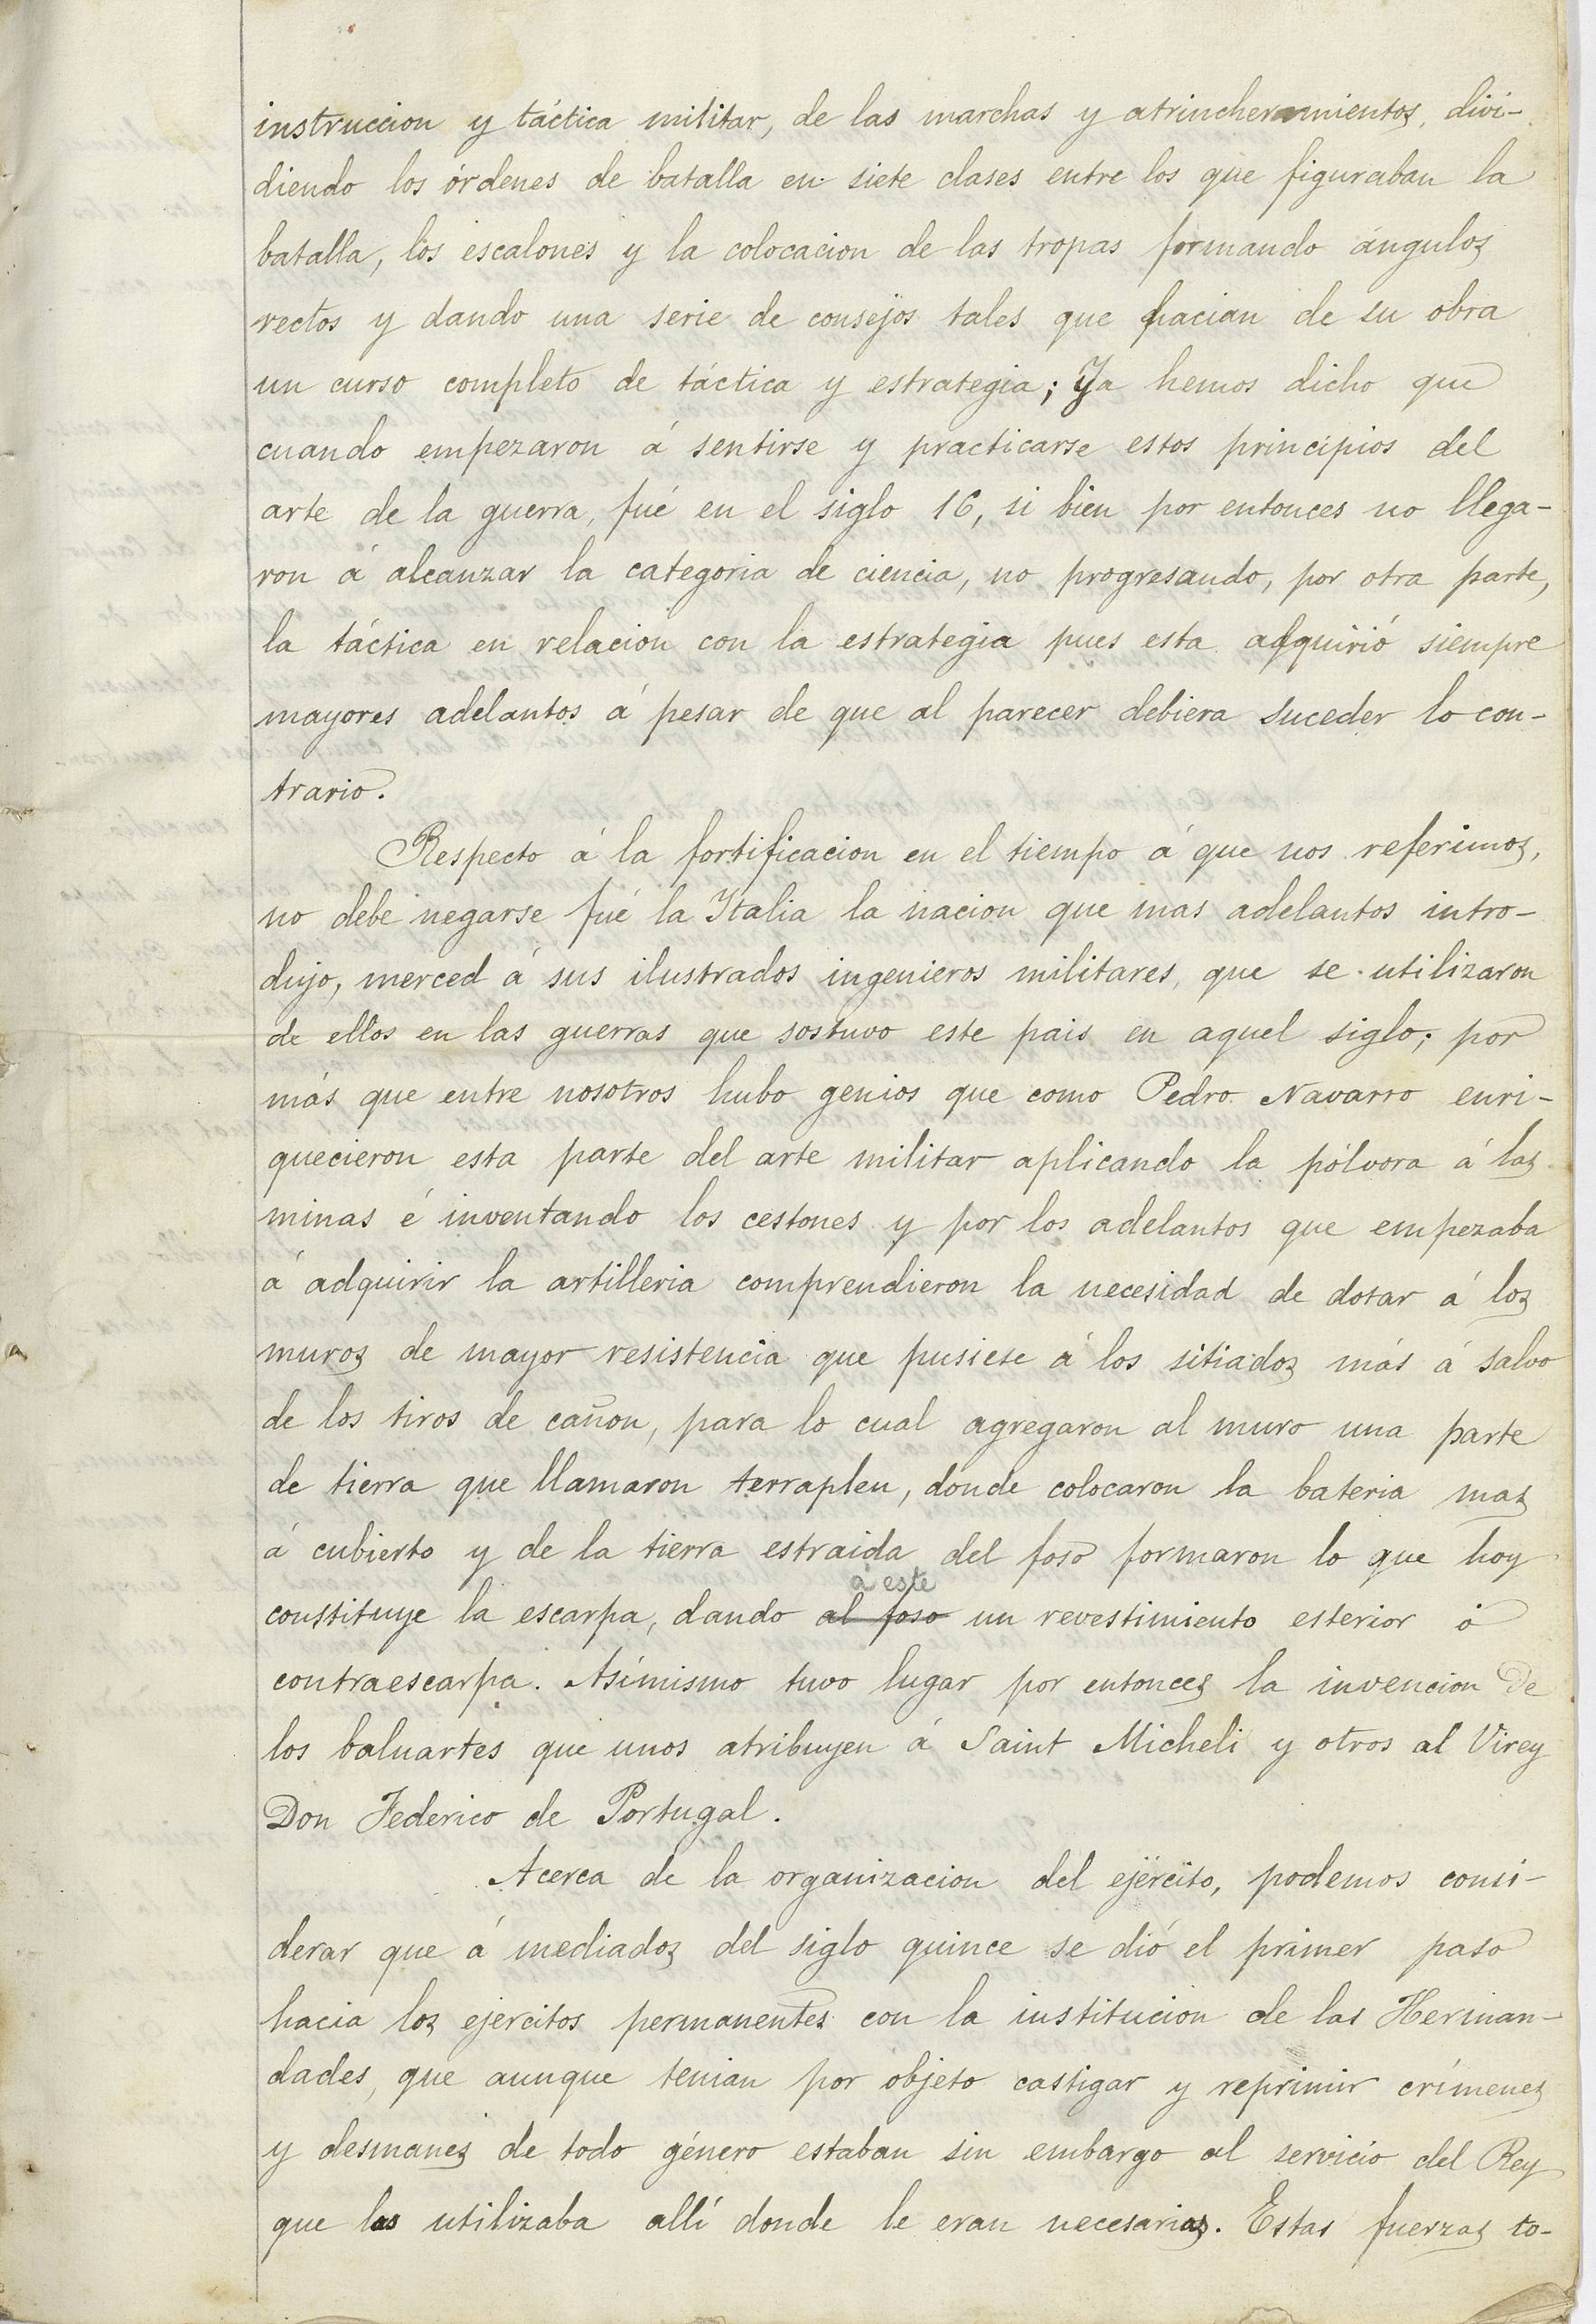 instruccion y táctica militar, de las marchas y atrincheramientos, divi-
diendo los órdenes de batalla en siete clases entre los que figuraban la
batalla, los escalones y la colocacion de las tropas formando ángulos
rectos y dando una serie de consejos tales que hacian de su obra
un curso completo de táctica y estrategia; Ya hemos dicho que
cuando empezaron á sentirse y practicarse estos principios del
arte de la guerra, fué en el siglo 16, si bien por entonces no llega-
ron á alcanzar la categoria de ciencia, no progresando, por otra parte,
la táctica en relacion con la estrategia pues esta adquirió siempre
mayores adelantos á pesar de que al parecer debiera suceder lo con-
trario.
Respecto á la fortificacion en el tiempo á que nos referimos,
no debe negarse fué la Italia la nacion que mas adelantos intro-
dujo, merced á sus ilustrados ingenieros militares, que se utilizaron
de ellos en las guerras que sostuvo este pais en aquel siglo; por
más que entre nosotros hubo genios que como Pedro Navarro enri-
quecieron esta parte del arte militar aplicando la pólvora á las
minas é inventando los cestones y por los adelantos que empezaba
á adquirir la artilleria comprendieron la necesidad de dotar á los
muros de mayor resistencia que pusiese á los sitiados más á salvo
de los tiros de cañon, para lo cual agregaron al muro una parte
de tierra que llamaron terraplen, donde colocaron la bateria mas
á cubierto y de la tierra estraida del foso formaron lo que hoy
á este
constituye la escarpa, dando al foso un revestimiento esterior ó
contraescarpa. Asímismo tuvo lugar por entonces la invencion de
los baluartes que unos atribuyen á Saint Micheli y otros al Virey
Don Federico de Portugal.
Acerca de la organizacion del ejército, podemos consi-
derar que á mediados del siglo quince se dió el primer paso
hacia los ejercitos permanentes con la institucion de las Herman-
dades, que aunque tenian por objeto castigar y reprimir crímenes
y desmanes de todo género estaban sin embargo al servicio del Rey
que las utilizaba allí donde le eran necesarias. Estas fuerzas to-